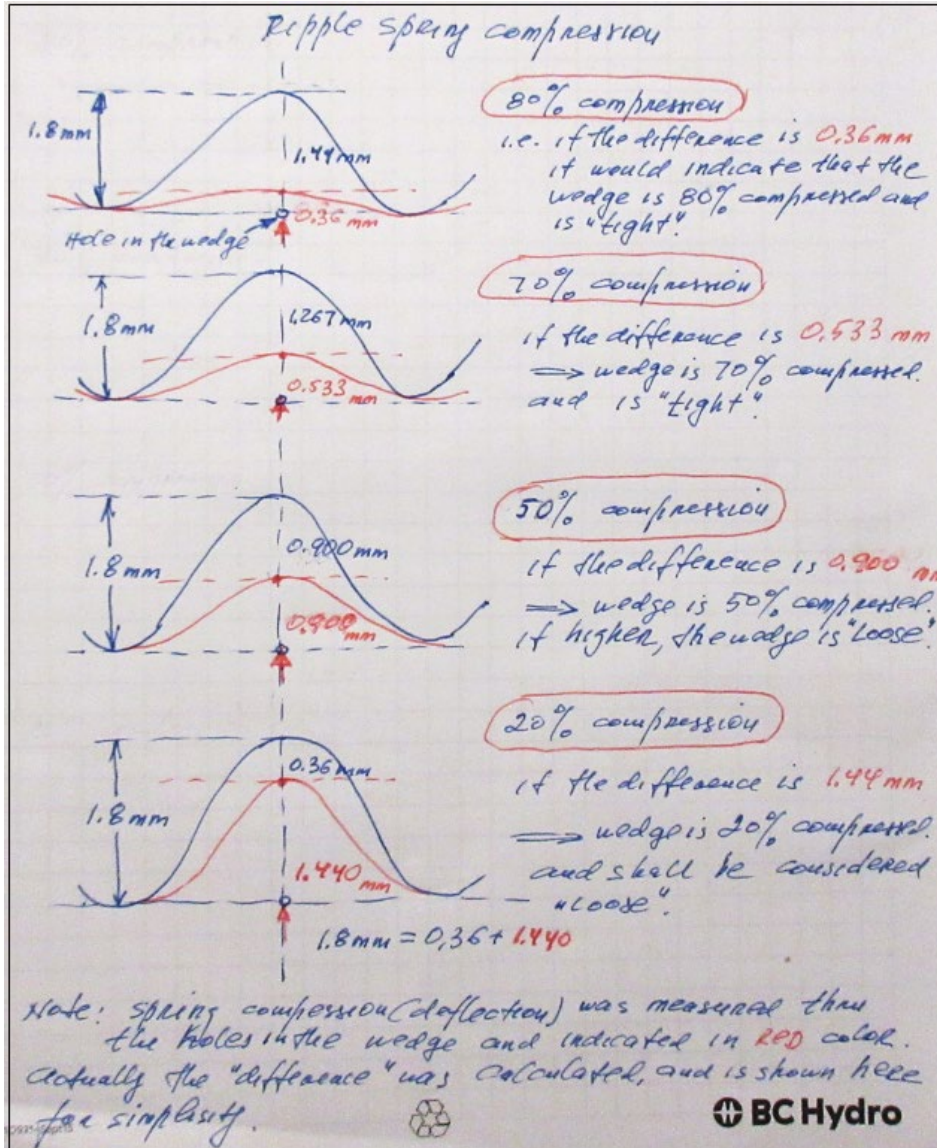 Ripple spring compression
1.8mm
1.44mm
0.36 mm
Hole in the wedge
80% compression
i.e. if the difference is 0.36mm
it would indicate that the
wedge is 80% compressed and
is "tight".
1.8mm
1.267mm
0.533
mm
70% compression
if the difference is 0.533 mm
⟹ wedge is 70% compressed.
and is "tight".
1.8mm
0.900mm
0.900
mm
50% compression
if the difference is 0.900 mm
⟹ wedge is 50% compressed.
if higher, the wedge is "loose".
1.8mm
0.36mm
1.440 mm
1.8mm = 0,36 + 1.440
20% compression
if the difference is 1.44mm
⟹ wedge is 20% compressed.
and shall be considered
"loose".
Note: spring compession (deflection) was measured thru
the holes in the wedge and indicated in RED color.
actually the "difference" was calculated, and is shown here
for simplisity.
BC Hydro